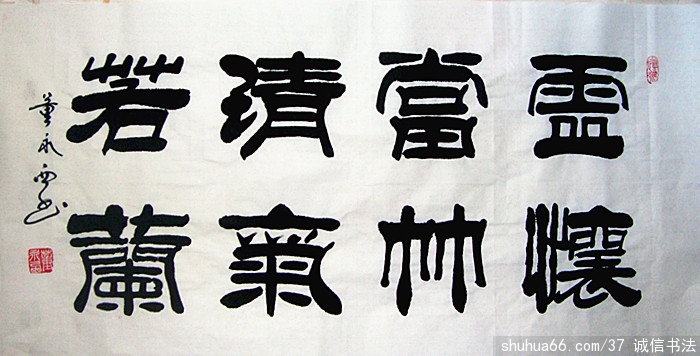 虛懷
當竹
清氣
若蘭
董永西书
shuhua66.com/37 诚信书法